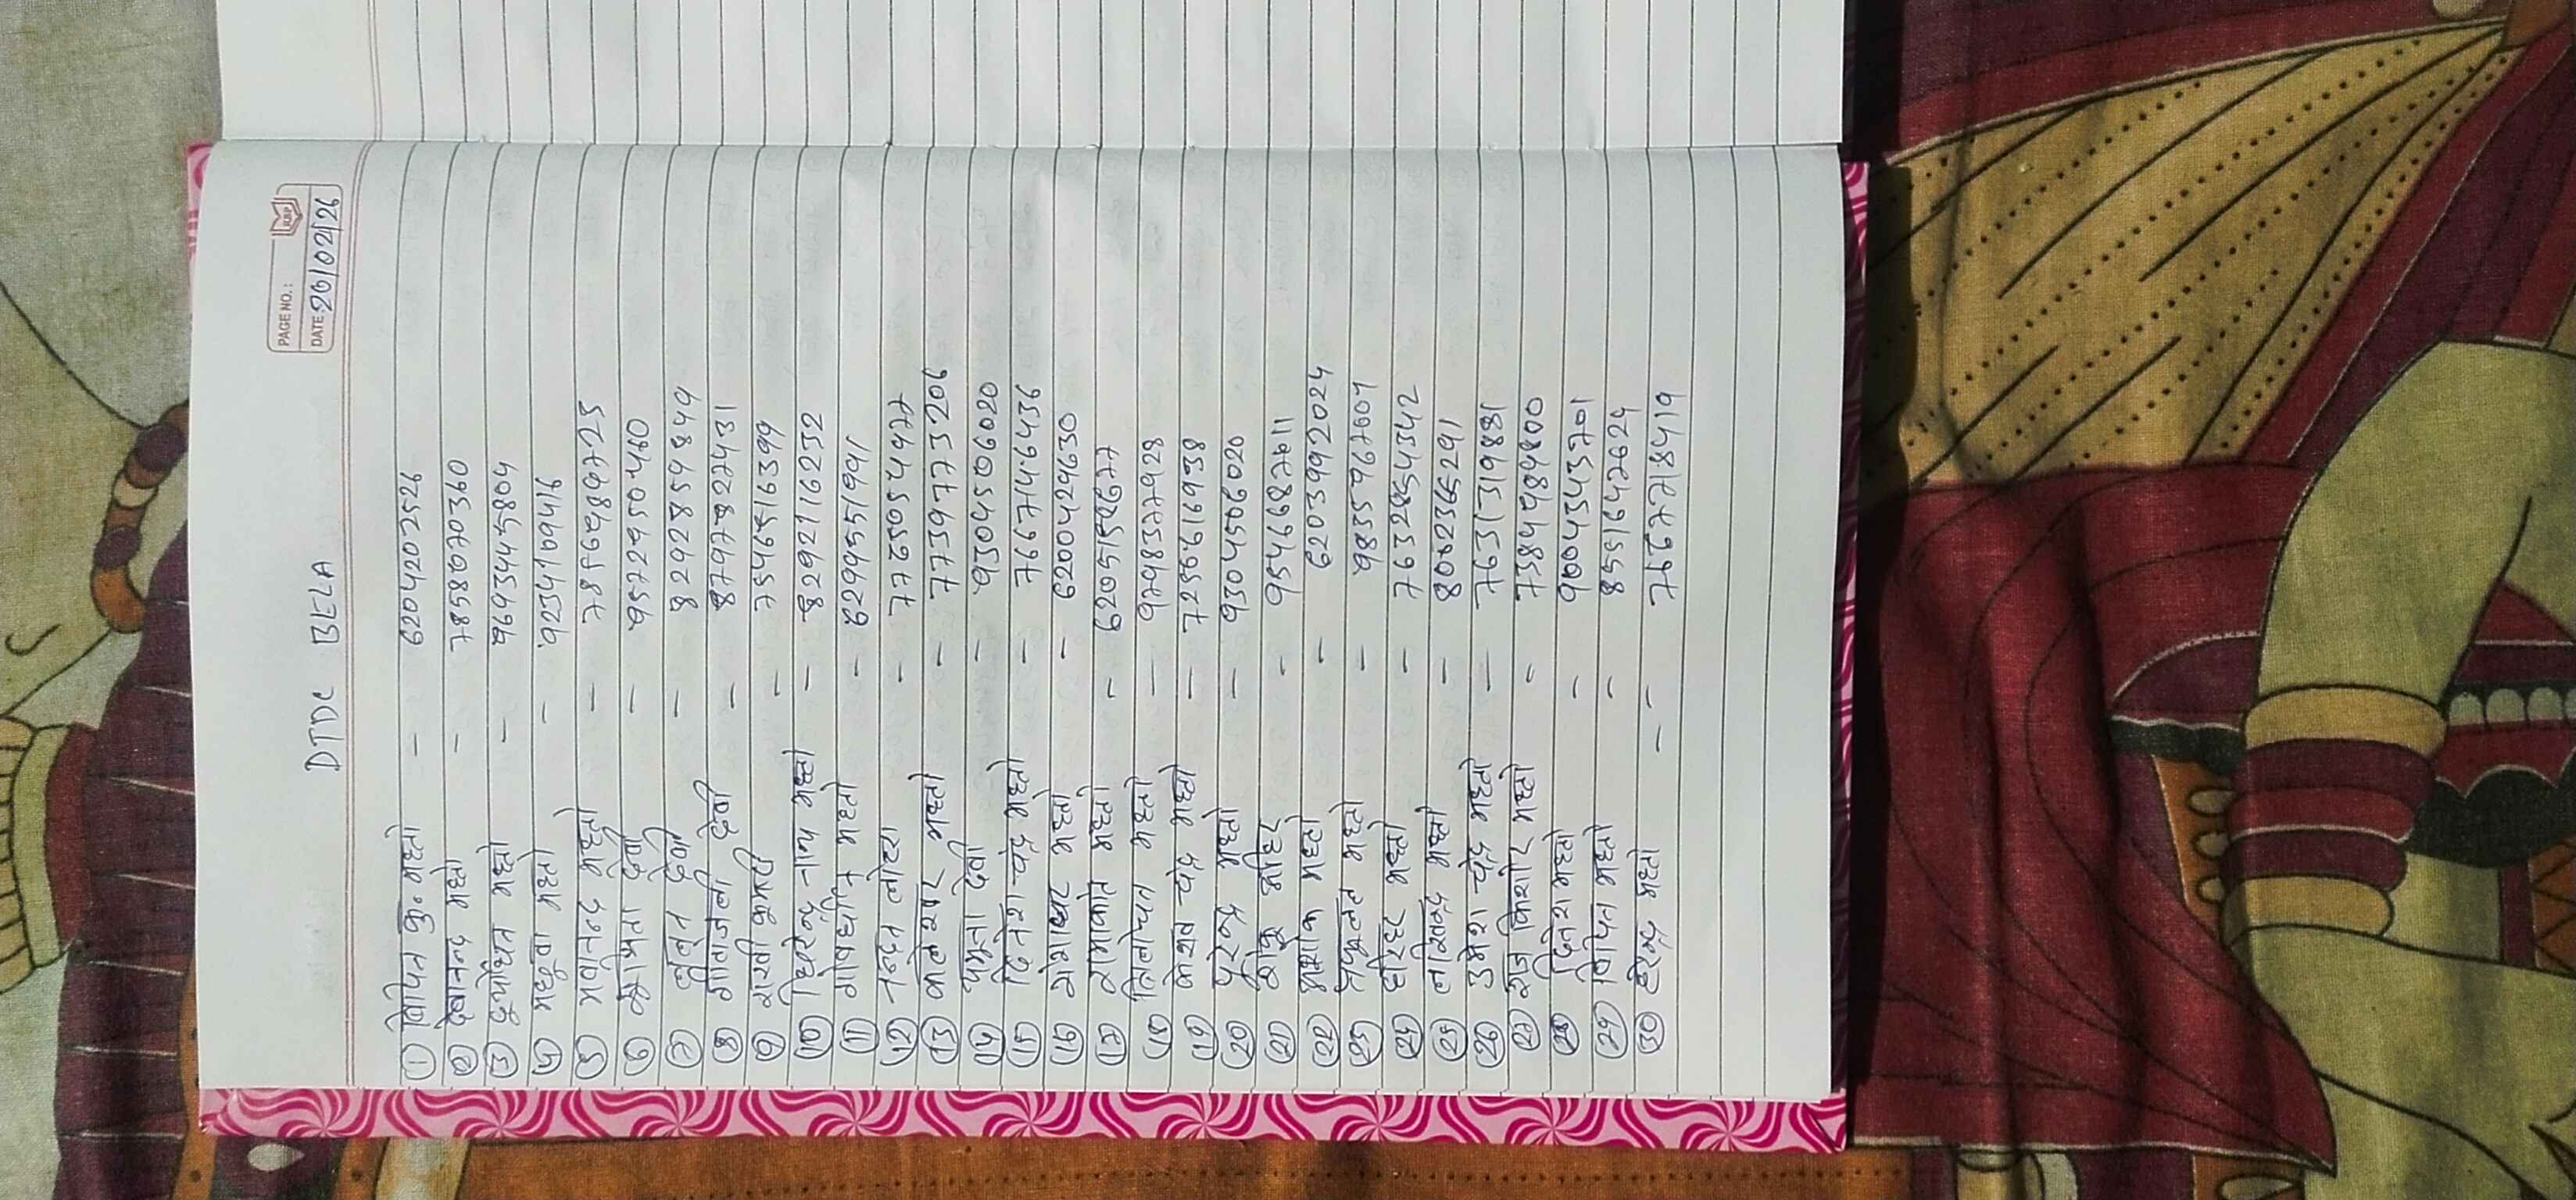 PAGE NO.:
DATE: 26/02/26
DTDC BELA
① विपिन कु॰ महतो - 6204202526
② देवानन्द महतो - 7858070360
③ दुर्योधन महतो - 9693445804
④ मधुवा महतो - 9234109416
⑤ भवानन्द महतो - 7856987725
⑥ देवी - 9572950460
⑦ देवी - 8292859844
⑧ गीतांजली देवी - 8797827431
⑨ राखी कुमारी - 7546516399
⑩ धिरेन्द्र नाथ महतो - 8292116232
⑪ गोवर्धन महतो - 6299551991
⑫ नन्दन लोहरा - 7765054977
⑬ कालेश्वर महतो - 7739773206
⑭ यमुना देवी - 9304506020
⑮ दिनेश चंद्र महतो - 7667146436
⑯ महतो - 6200424630
⑰ रामाकांत महतो - 6205152677
⑱ त्रिलोचन महतो - 9798377928
⑲ केशव चंद्र महतो - 7256616938
⑳ महतो - 9304506020
㉑ - 9546687011
㉒ अशोक महतो - 6203992024
㉓ महतो - 9835967004
㉔ महतो - 7632854342
㉕ महतो -
㉖ उमेश चंद्र महतो - 7631319881
㉗ राज किशोर महतो - 7384984800
㉘ दिनेश महतो - 9004343701
㉙ विपिन महतो - 8551647624
㉚ महतो - - 7667718419